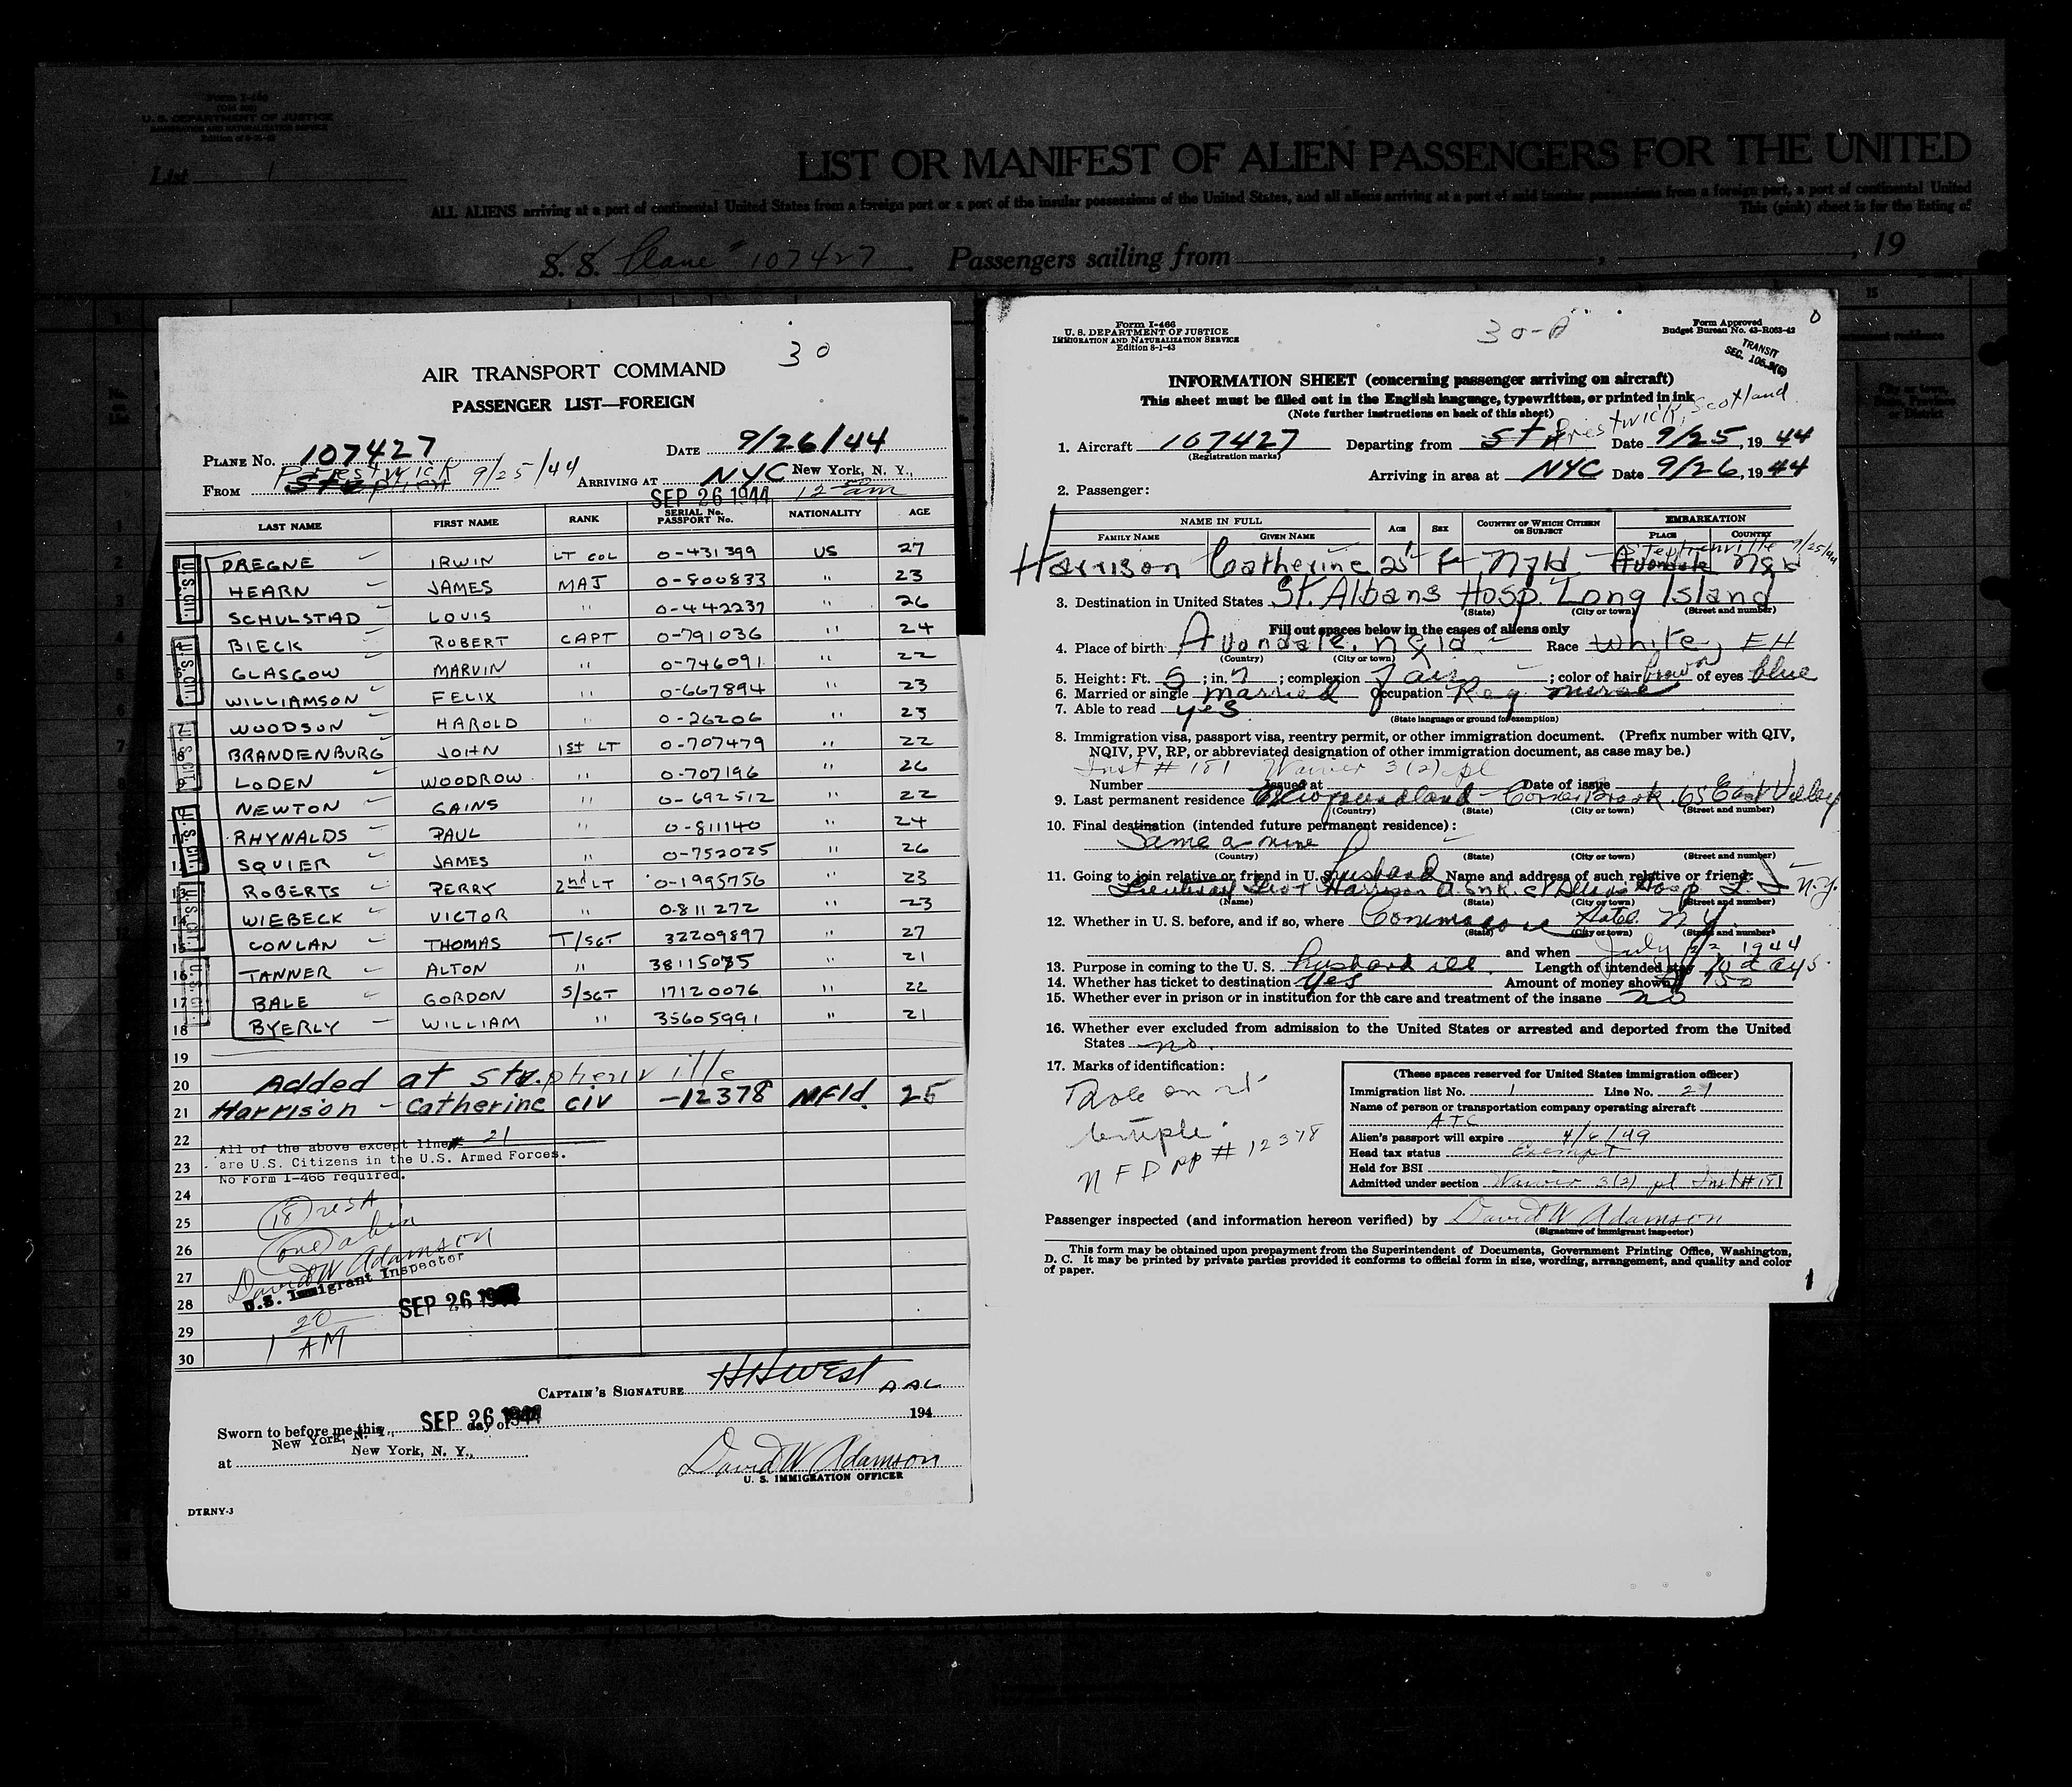 Form I-466
(Old 500)
U. S. DEPARTMENT OF JUSTICE
IMMIGRATION AND NATURALIZATION SERVICE
List 1
LIST OR MANIFEST OF ALIEN PASSENGERS FOR THE UNITED
ALL ALIENS arriving at a port of continental United States from a foreign port or a port of the insular possessions of the United States, and all aliens arriving at a port of said insular possessions from a foreign port, a port of continental United
This (pink) sheet is for the listing of
S. S. Plane # 107427 Passengers sailing from , , 19
30
AIR TRANSPORT COMMAND
PASSENGER LIST—FOREIGN
PLANE No. 107427 DATE 9/26/44
FROM Prestwick 9/25/44 ARRIVING AT NYC New York, N. Y.,
SEP 26 1944 12 50 am
LAST NAME FIRST NAME RANK SERIAL No. PASSPORT No. NATIONALITY AGE
DREGNE IRWIN LT COL 0-431399 US 27
HEARN JAMES MAJ 0-800833 " 23
SCHULSTAD LOUIS " 0-442237 " 26
BIECK ROBERT CAPT 0-791036 " 24
GLASGOW MARVIN " 0-746091 " 22
WILLIAMSON FELIX " 0-667894 " 23
WOODSON HAROLD " 0-26206 " 23
BRANDENBURG JOHN 1ST LT 0-707479 " 22
LODEN WOODROW " 0-707196 " 26
NEWTON GAINS " 0-692512 " 22
RHYNALDS PAUL " 0-811140 " 24
SQUIER JAMES " 0-752025 " 26
ROBERTS PERRY 2nd LT 0-1995756 " 23
WIEBECK VICTOR " 0-811272 " 23
CONLAN THOMAS T/SGT 32209897 " 27
16 TANNER ALTON " 38115085 " 21
17 BALE GORDON S/SGT 17120076 " 22
18 BYERLY WILLIAM " 35605991 " 21
U.S. CIT.
U.S. CIT.
U.S. CIT.
U.S. CIT.
U.S. CIT.
U.S. CIT.
19
20 Added at Stephenville
21 Harrison - Catherine CIV -12378 NFld. 25
22 All of the above except line# 21
23 are U.S. Citizens in the U.S. Armed Forces.
No Form I-466 required.
24
25 (18) USA
26 (one) alien
27 David W Adamson
U.S. Immigrant Inspector
28 SEP 26 1944
29 1 20
30 AM
CAPTAIN'S SIGNATURE HHWest AAL
Sworn to before me this SEP 26 1944 day of 194
New York, N. Y.,
at New York, N. Y.,
David W Adamson
U. S. IMMIGRATION OFFICER
DTRNY-3
Form I-466
U. S. DEPARTMENT OF JUSTICE
IMMIGRATION AND NATURALIZATION SERVICE
Edition 8-1-43
30-A
Form Approved
Budget Bureau No. 43-R063-42
0
TRANSIT
SEC. 106.3(G)
INFORMATION SHEET (concerning passenger arriving on aircraft)
This sheet must be filled out in the English language, typewritten, or printed in ink
(Note further instructions on back of this sheet)
1. Aircraft 107427 Departing from Prestwick, Scotland Date 9/25, 19 44
(Registration marks)
Arriving in area at NYC Date 9/26, 19 44
2. Passenger:
NAME IN FULL AGE SEX COUNTRY OF WHICH CITIZEN OR SUBJECT EMBARKATION
FAMILY NAME GIVEN NAME PLACE COUNTRY
Harrison Catherine 25 F Nfld Stephenville Avondale Nfld 9/25/44
3. Destination in United States St. Albans Hosp. Long Island
(State) (City or town) (Street and number)
Fill out spaces below in the cases of aliens only
4. Place of birth Avondale, Nfld Race white, EH
(Country) (City or town)
5. Height: Ft. 5; in. 7; complexion Fair; color of hair brown of eyes blue
6. Married or single married Occupation Reg nurse
7. Able to read yes
(State language or ground for exemption)
8. Immigration visa, passport visa, reentry permit, or other immigration document. (Prefix number with QIV,
NQIV, PV, RP, or abbreviated designation of other immigration document, as case may be.)
Inst # 181 Waiver 3(2) pl
Number Issued at Date of issue
9. Last permanent residence Newfoundland Corner Brook 65 East Valley
(Country) (State) (City or town) (Street and number)
10. Final destination (intended future permanent residence):
Same as nine
(Country) (State) (City or town) (Street and number)
11. Going to join relative or friend in U. S. Husband Name and address of such relative or friend:
Harrison St Albans Hosp L. I. N.Y.
(Name) (State) (City or town) (Street and number)
12. Whether in U. S. before, and if so, where Commodore Hotel N Y
(State) (City or town) (Street and number)
and when July 1944
13. Purpose in coming to the U. S. husband ill Length of intended stay 10 days
14. Whether has ticket to destination Yes Amount of money shown 150
15. Whether ever in prison or in institution for the care and treatment of the insane no
16. Whether ever excluded from admission to the United States or arrested and deported from the United
States no.
17. Marks of identification:
on rt
temple.
NFD pp # 12378
(These spaces reserved for United States immigration officer)
Immigration list No. 1 Line No. 21
Name of person or transportation company operating aircraft
ATC
Alien's passport will expire 4/6/49
Head tax status Exempt
Held for BSI
Admitted under section Waiver 3(2) pl Inst # 181
Passenger inspected (and information hereon verified) by David W Adamson
(Signature of immigrant inspector)
This form may be obtained upon prepayment from the Superintendent of Documents, Government Printing Office, Washington,
D. C. It may be printed by private parties provided it conforms to official form in size, wording, arrangement, and quality and color
of paper.
1